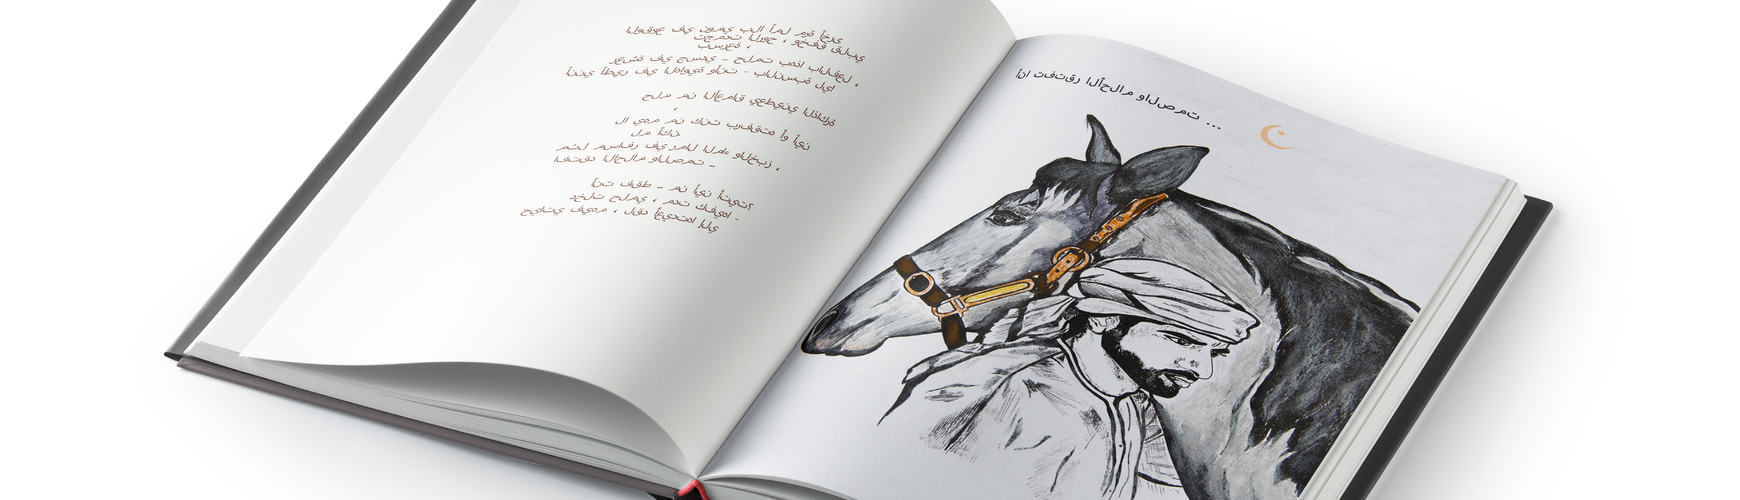 الوقوع في نومي بلا أمل مرة أخرى
تجمدت الروح ، وخفق قلبي
بسرعة ،
رعشة في جسدي - حلمت بهذا بالفعل ،
أنني أطير في الهاوية وأنت - بالنسبة ليا
حلم من الأعماق يعطيني الذاكرة
،
لا يهم من كنت برفقته أو أين
لم أكن
مثل مسافر في رمال الماء والخبز ،
افتقد الأحلام والصمت -
أنت فقط - من أين أتيت؟
دخلت حلمي ،
حياتي فيهم ، لقد أعيدتها إلي
أنا تفتقر الأحلام والصمت ...